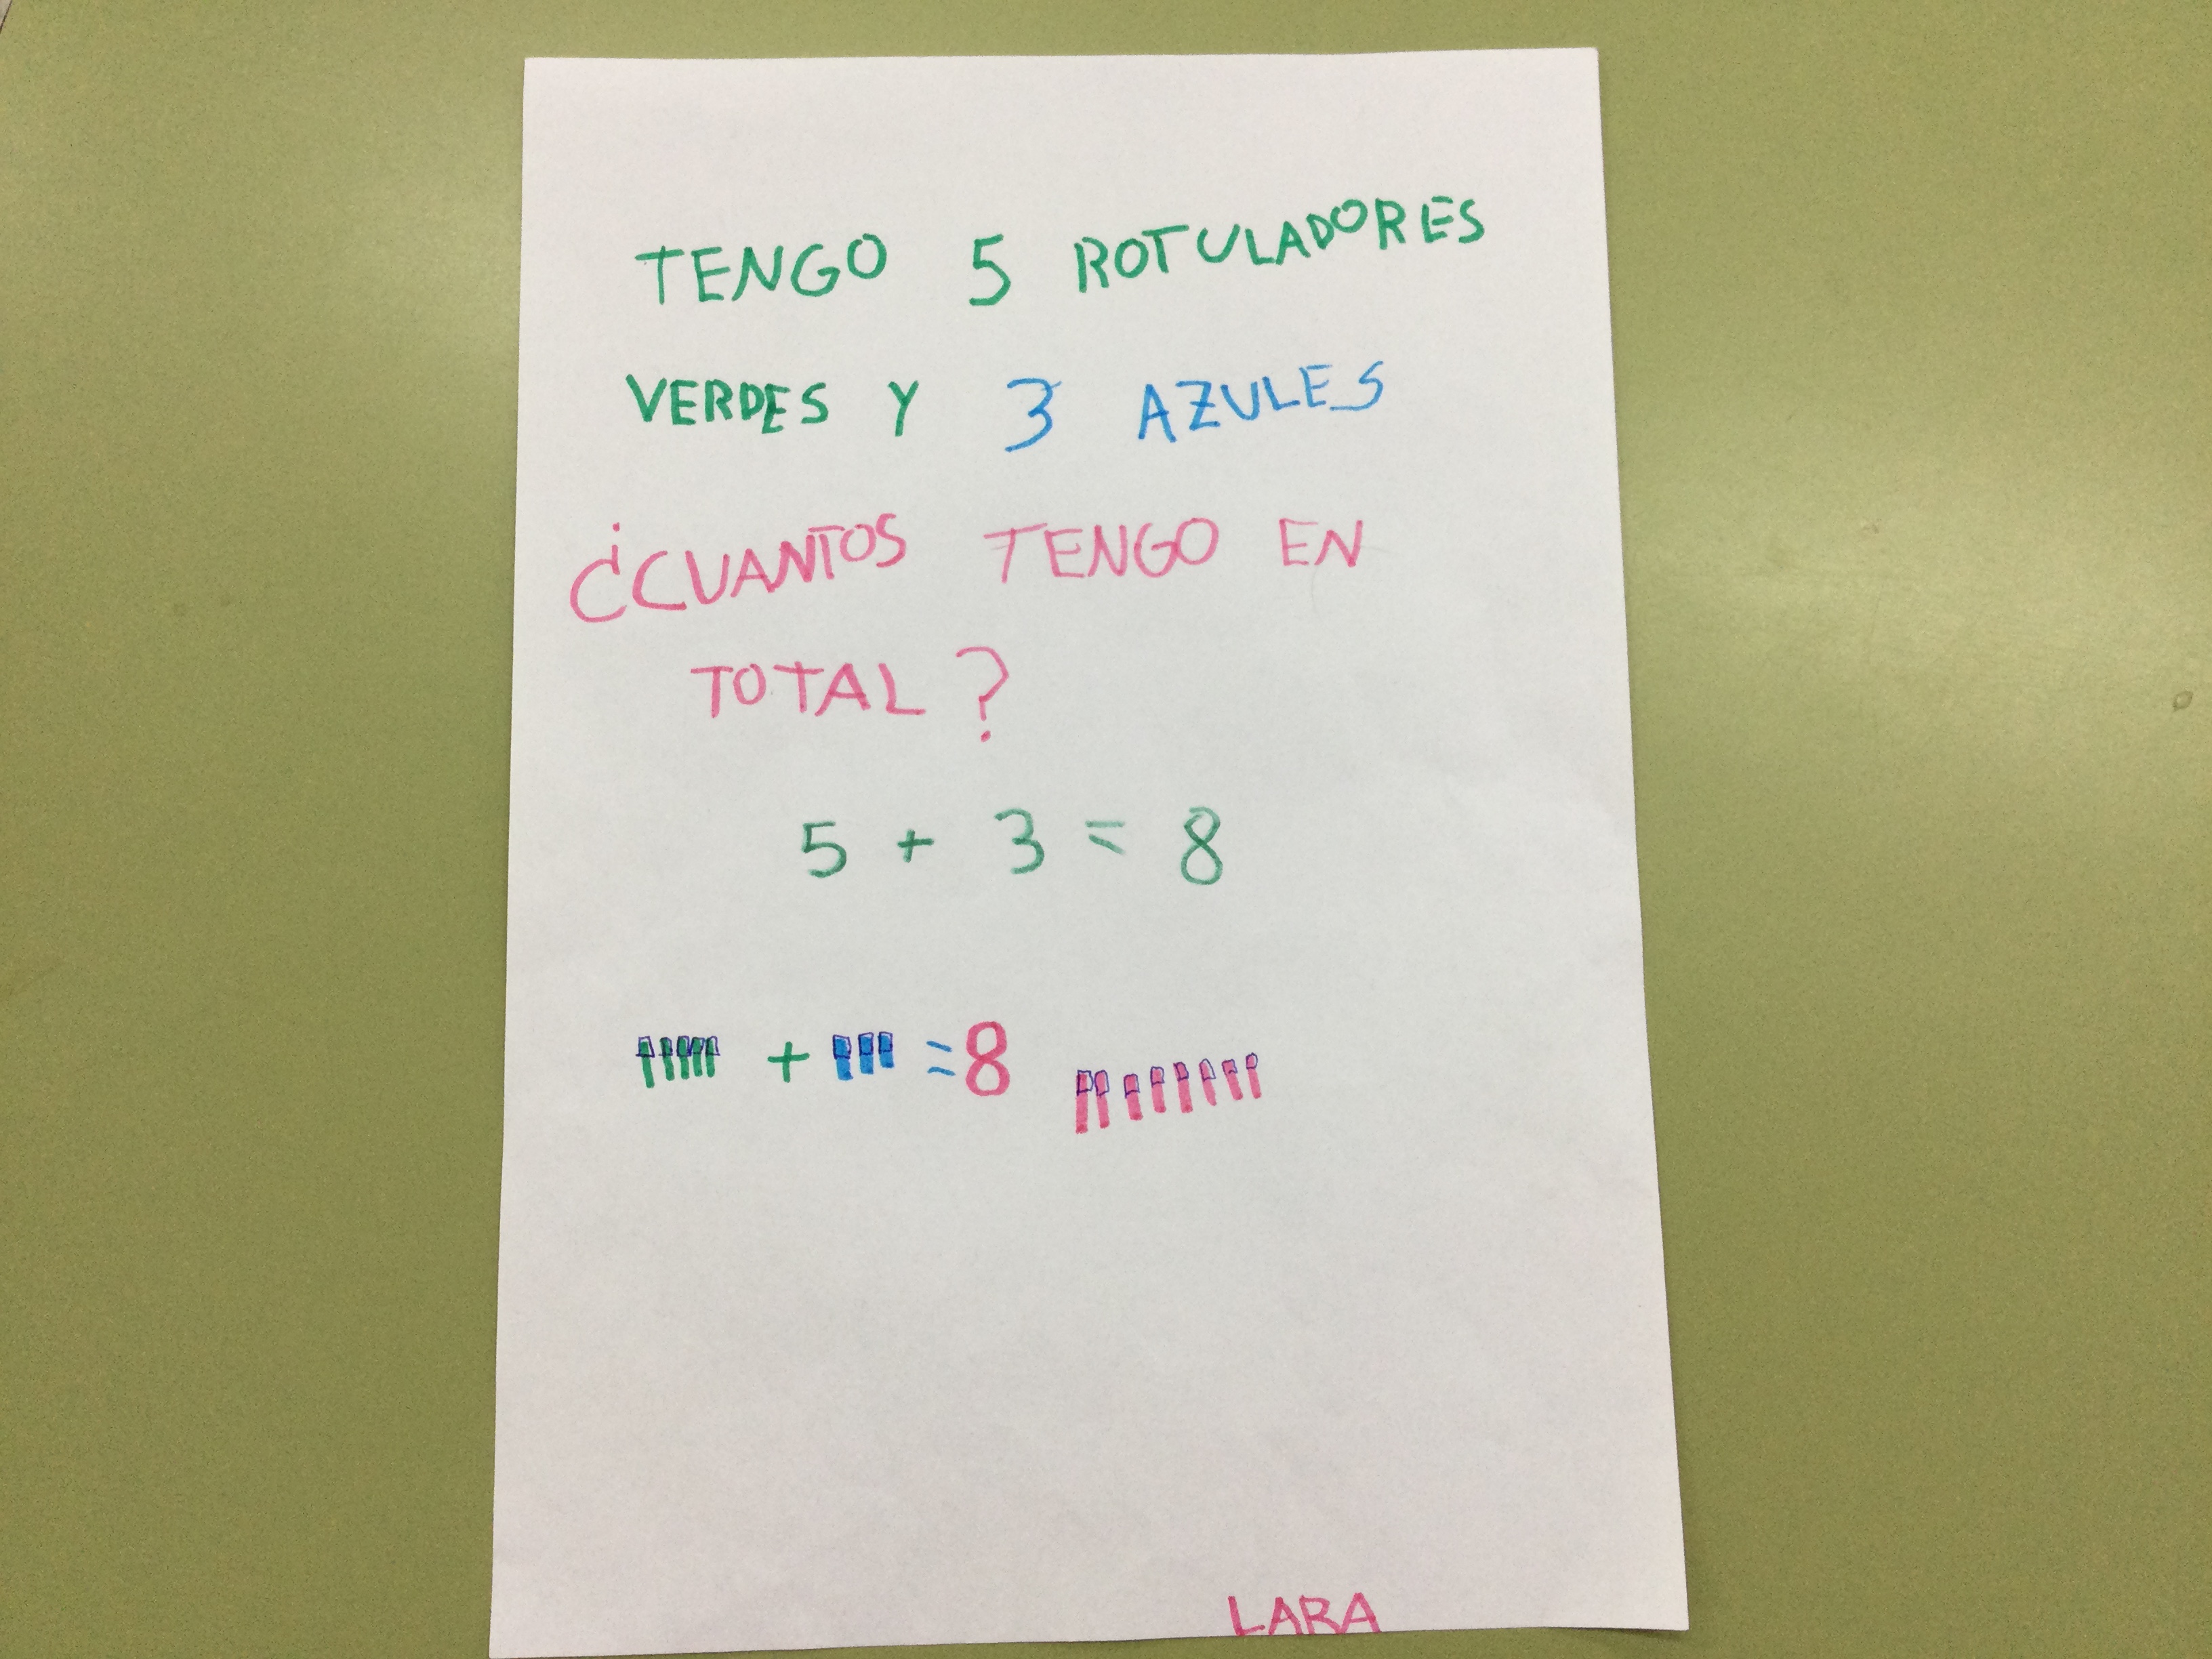 TENGO 5 ROTULADORES
VERDES Y 3 AZULES
¿CUANTOS TENGO EN
TOTAL?
5 + 3 = 8
+ = 8
LARA